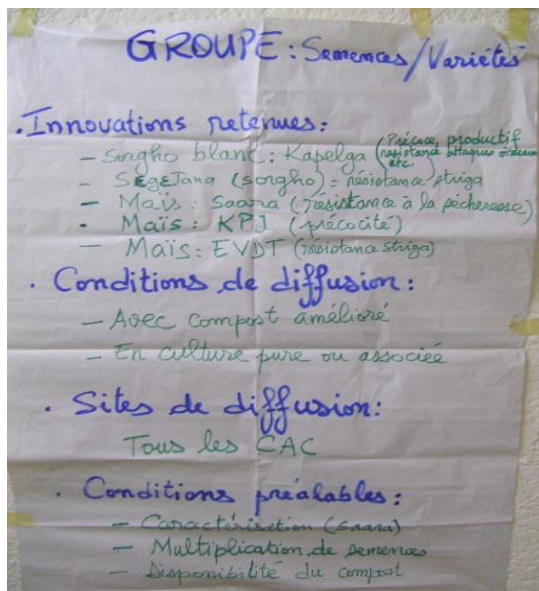 GROUPE : Semences/Variétés
. Innovations retenues :
- Sorgho blanc : Kapelga (Précoce, productif
résistance attaques oiseaux
etc.
- SɛgɛTana (sorgho) = résistance striga
- Maïs : Saara (résistance à la sécheresse)
- Maïs : KPJ (précocité)
- Maïs : EVDT (résistance striga)
. Conditions de diffusion :
- Avec compost amélioré
- En culture pure ou associée
. Sites de diffusion :
Tous les CAC
. Conditions préalables :
- Caractérisction (Saara)
- Multiplication de semences
- Disponibilité du compost